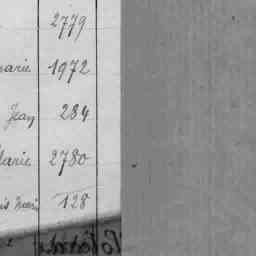 2779
marie 1972
Jean 284
Marie 2780
128